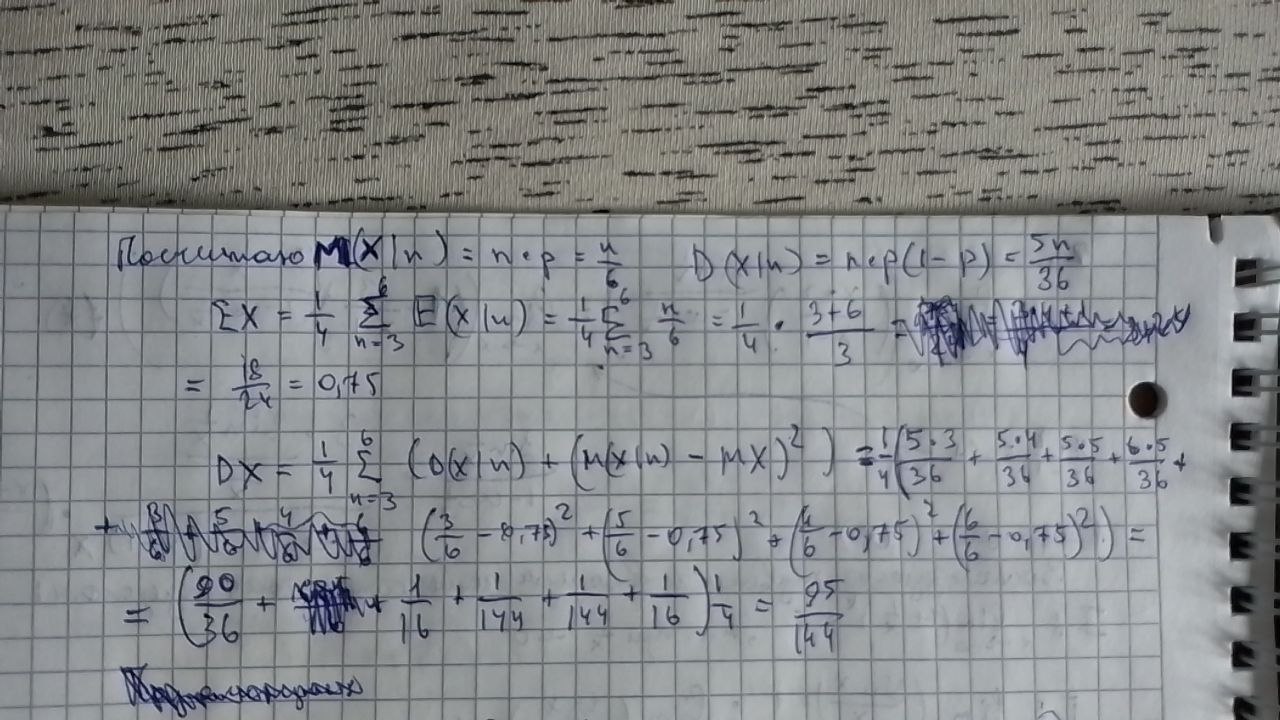 Посчитаю M(X|n) = n·p = n/6 D(X|n) = n·p(1-p) = 5n/36
EX = 1/4 Σ_{n=3}^{6} E(X|n) = 1/4 Σ_{n=3}^{6} n/6 = 1/4 · (3+6)/3 =
= 18/24 = 0,75
DX = 1/4 Σ_{n=3}^{6} (D(X|n) + (M(X|n) - MX)^2) = 1/4(5·3/36 + 5·4/36 + 5·5/36 + 6·5/36 +
+ (3/6 - 0,75)^2 + (5/6 - 0,75)^2 + (4/6 - 0,75)^2 + (6/6 - 0,75)^2) =
= (90/36 + 1/16 + 1/144 + 1/144 + 1/16) 1/4 = 95/144